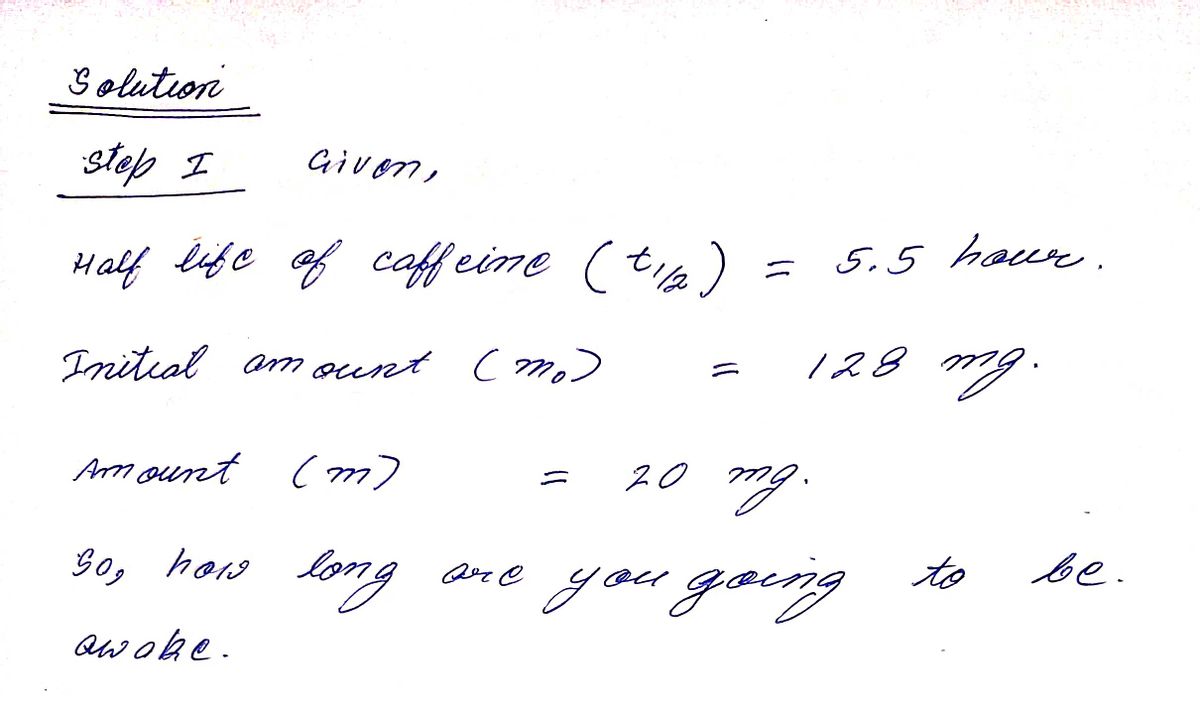 Solution
Step I Given,
Half life of caffeine (t1/2) = 5.5 hour.
Initial amount (m₀) = 128 mg.
Amount (m) = 20 mg.
So, how long are you going to be.
awake.